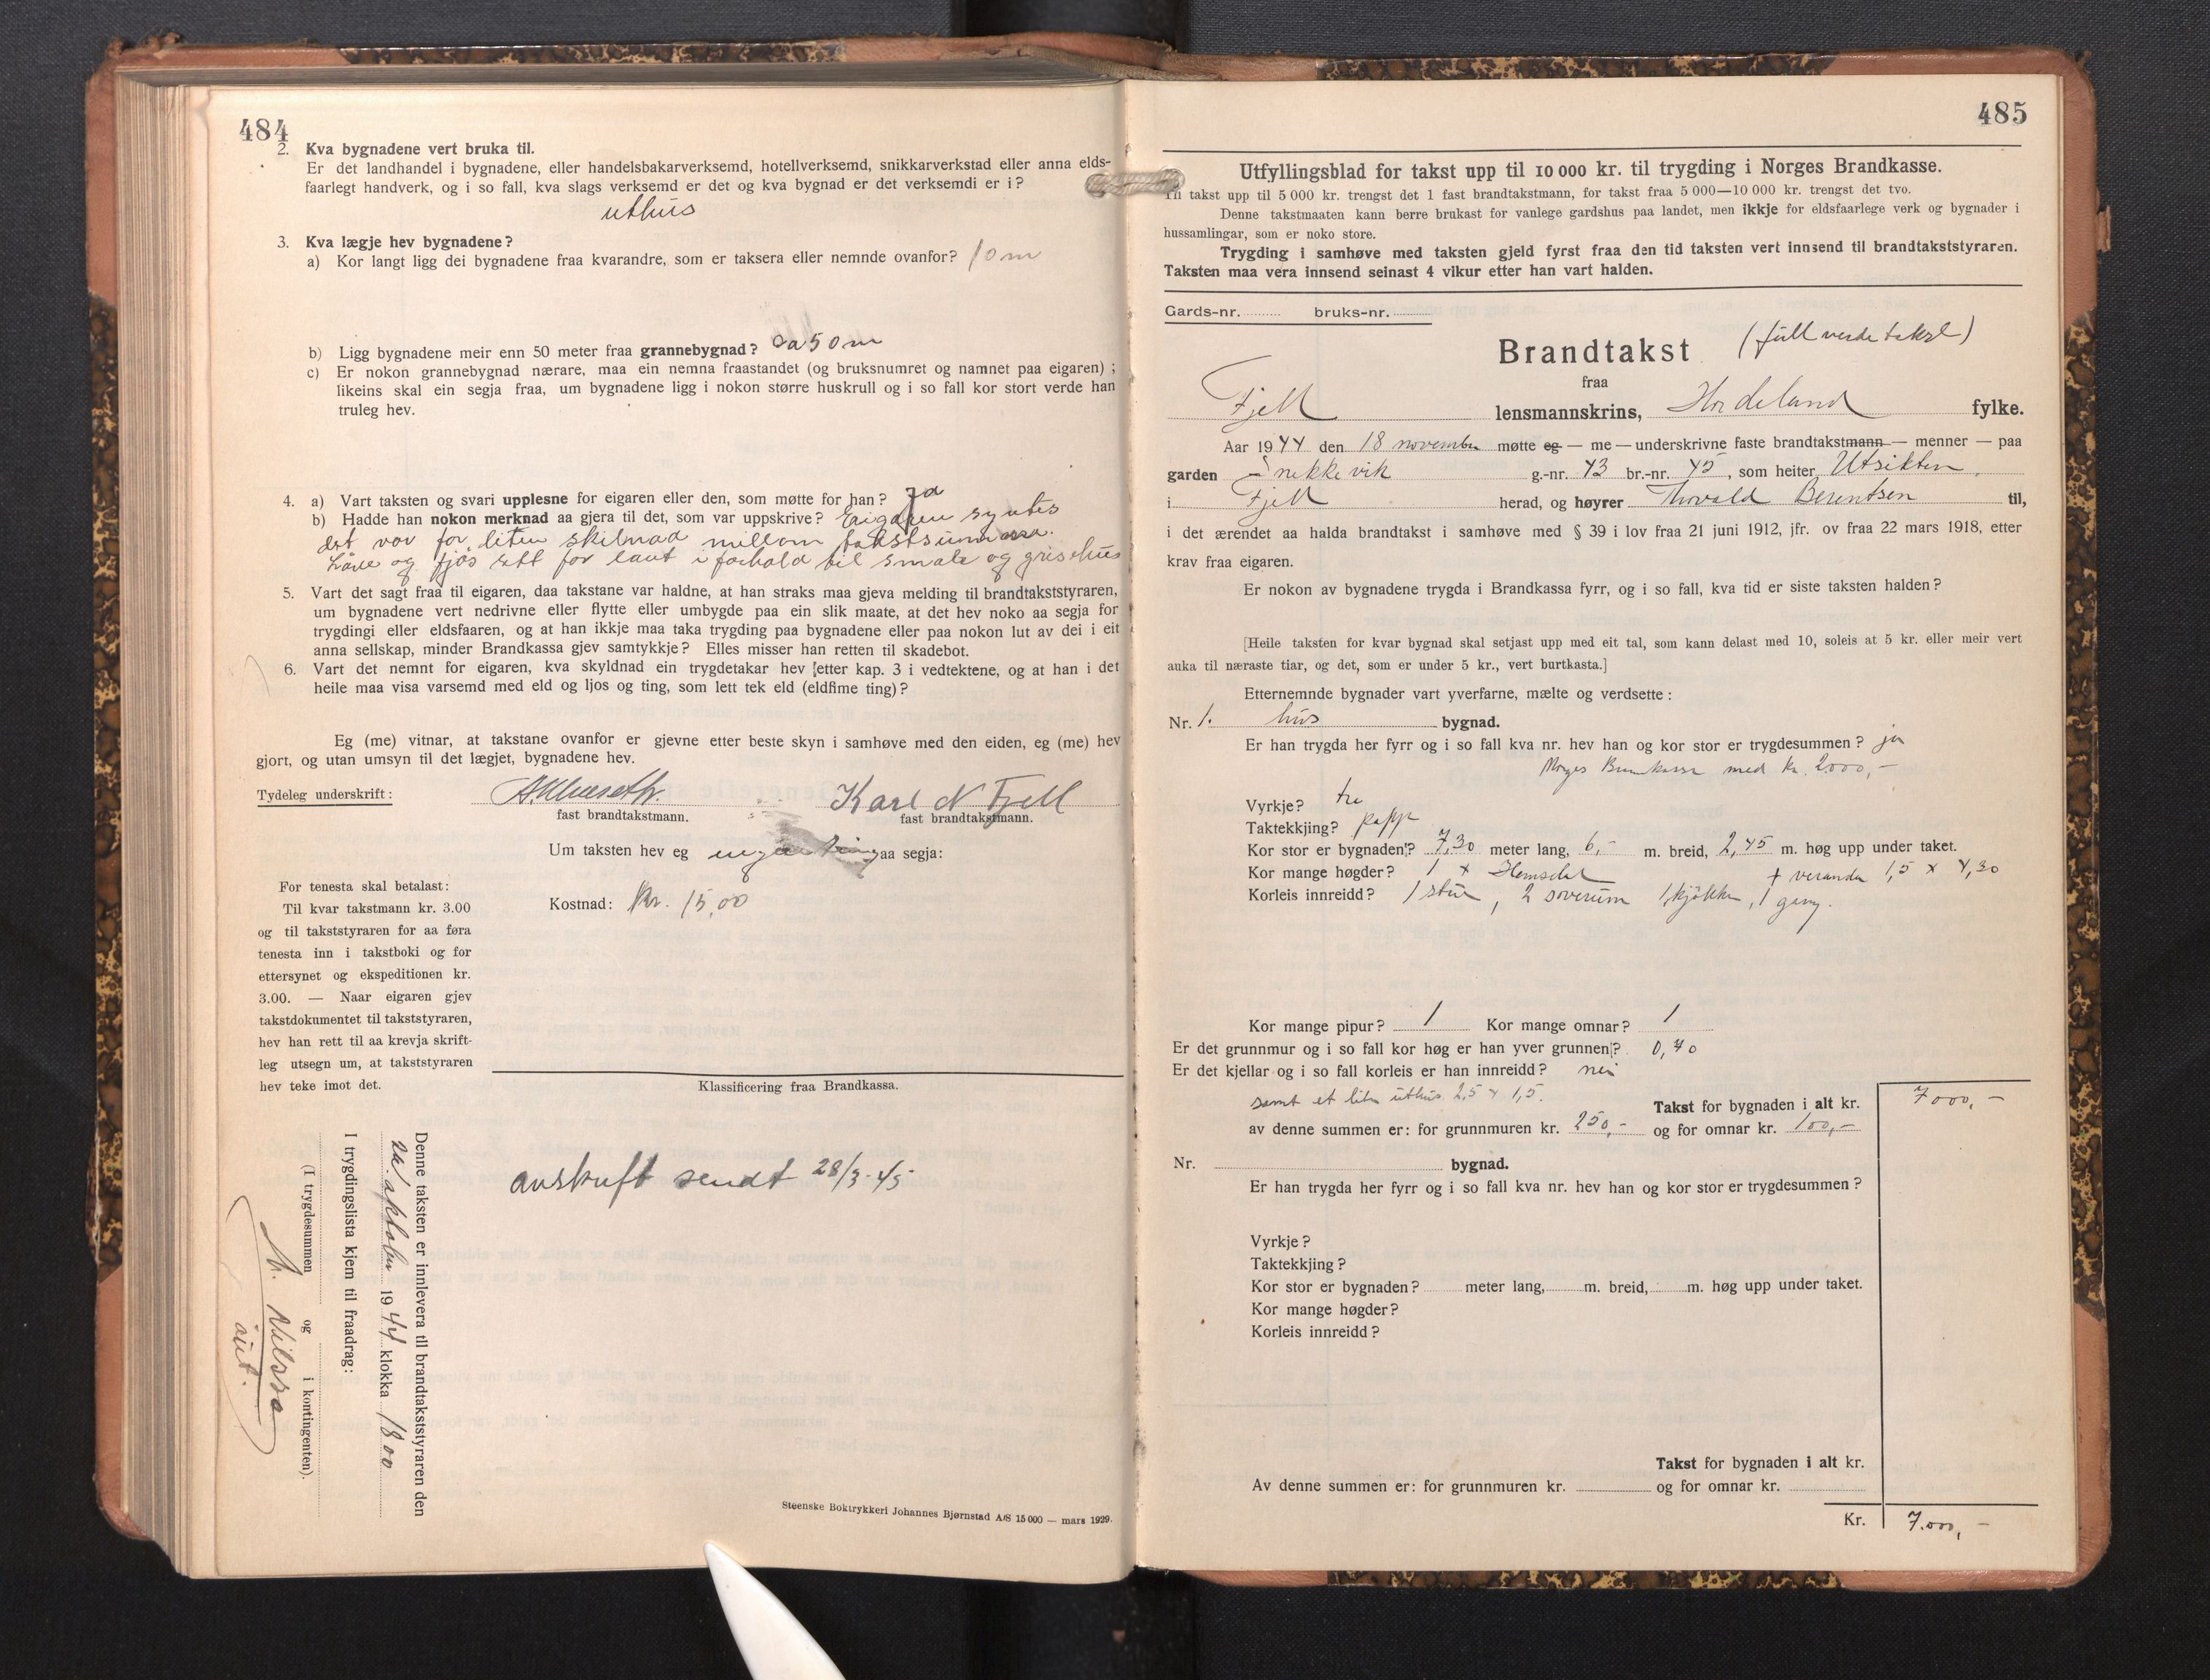 484
2. Kva bygnadene vert bruka til.
Er det landhandel i bygnadene, eller handelsbakarverksemd, hotellverksemd, snikkarverkstad eller anna elds-
faarlegt handverk, og i so fall, kva slags verksemd er det og kva bygnad er det verksemdi er i?
uthus
3. Kva lægje hev bygnadene?
a) Kor langt ligg dei bygnadene fraa kvarandre, som er taksera eller nemnde ovanfor? 10 m
b) Ligg bygnadene meir enn 50 meter fraa grannebygnad? ca 50 m
c) Er nokon grannebygnad nærare, maa ein nemna fraastandet (og bruksnumret og namnet paa eigaren) ;
likeins skal ein segja fraa, um bygnadene ligg i nokon større huskrull og i so fall kor stort verde han
truleg hev.
4. a) Vart taksten og svari upplesne for eigaren eller den, som møtte for han? Ja
b) Hadde han nokon merknad aa gjera til det, som var uppskrive? Eigaren syntes
det var for liten skilnad millom takstsummane.
Løve og fjøs sett for lavt i forhold til smale og grisehus
5. Vart det sagt fraa til eigaren, daa takstane var haldne, at han straks maa gjeva melding til brandtakststyraren,
um bygnadene vert nedrivne eller flytte eller umbygde paa ein slik maate, at det hev noko aa segja for
trygdingi eller eldsfaaren, og at han ikkje maa taka trygding paa bygnadene eller paa nokon lut av dei i eit
anna sellskap, minder Brandkassa gjev samtykkje? Elles misser han retten til skadebot.
6. Vart det nemnt for eigaren, kva skyldnad ein trygdetakar hev etter kap. 3 i vedtektene, og at han i det
heile maa visa varsemd med eld og ljos og ting, som lett tek eld (eldfime ting)?
Eg (me) vitnar, at takstane ovanfor er gjevne etter beste skyn i samhøve med den eiden, eg (me) hev
gjort, og utan umsyn til det lægjet, bygnadene hev.
Tydeleg underskrift: Karl N Fjell
fast brandtakstmann. fast brandtakstmann.
Um taksten hev eg ingenting aa segja:
For tenesta skal betalast:
Til kvar takstmann kr. 3.00
og til takststyraren for aa føra
tenesta inn i takstboki og for
ettersynet og ekspeditionen kr.
3.00. — Naar eigaren gjev
takstdokumentet til takststyraren,
hev han rett til aa krevja skrift-
leg utsegn um, at takststyraren
hev teke imot det.
Kostnad: Kr. 15,00
Klassificering fraa Brandkassa.
avskrift sendt 28/3-45
Denne taksten er innlevera til brandtakststyraren den
22/ oktober 1944 klokka 18 00
I trygdingslista kjem til fraadrag:
(I trygdesummen og i kontingenten).
N. Nilssen
aut.
Steenske Boktrykkeri Johannes Bjørnstad A/S 15 000 — mars 1929.
485
Utfyllingsblad for takst upp til 10 000 kr. til trygding i Norges Brandkasse.
Til takst upp til 5 000 kr. trengst det 1 fast brandtakstmann, for takst fraa 5 000—10 000 kr. trengst det tvo.
Denne takstmaaten kann berre brukast for vanlege gardshus paa landet, men ikkje for eldsfaarlege verk og bygnader i
hussamlingar, som er noko store.
Trygding i samhøve med taksten gjeld fyrst fraa den tid taksten vert innsend til brandtakststyraren.
Taksten maa vera innsend seinast 4 vikur etter han vart halden.
Gards-nr. bruks-nr.
Brandtakst (full verde takst)
fraa
Fjell lensmannskrins, Hordaland fylke.
Aar 1944 den 18 november møtte eg — me — underskrivne faste brandtakstmann — menner — paa
garden Snekkevik g.-nr. 43 br.-nr. 45, som heiter Utsikten.
i Fjell herad, og høyrer Torvald Berentsen til,
i det ærendet aa halda brandtakst i samhøve med § 39 i lov fraa 21 juni 1912, jfr. ov fraa 22 mars 1918, etter
krav fraa eigaren.
Er nokon av bygnadene trygda i Brandkassa fyrr, og i so fall, kva tid er siste taksten halden?
[Heile taksten for kvar bygnad skal setjast upp med eit tal, som kann delast med 10, soleis at 5 kr. eller meir vert
auka til næraste tiar, og det, som er under 5 kr., vert burtkasta.]
Etternemnde bygnader vart yverfarne, mælte og verdsette :
Nr. 1. hus bygnad.
Er han trygda her fyrr og i so fall kva nr. hev han og kor stor er trygdesummen? ja
Norges Brannkasse med kr. 2000,-
Vyrkje? tre
Taktekkjing? papp
Kor stor er bygnaden? 7,30 meter lang, 6,- m. breid, 2,45 m. høg upp under taket.
Kor mange høgder? 1 + Hemsedal + veranda 1,5 x 4,30
Korleis innreidd? 1 stue, 2 soverum 1 kjøkken, 1 gang.
Kor mange pipur? 1 Kor mange omnar? 1
Er det grunnmur og i so fall kor høg er han yver grunnen? 0,40
Er det kjellar og i so fall korleis er han innreidd? nei
samt et lite uthus 2,5 x 1,5.
Takst for bygnaden i alt kr. 7000,-
av denne summen er: for grunnmuren kr. 250,- og for omnar kr. 100,-
Nr. bygnad.
Er han trygda her fyrr og i so fall kva nr. hev han og kor stor er trygdesummen?
Vyrkje?
Taktekkjing?
Kor stor er bygnaden? meter lang, m. breid, m. høg upp under taket.
Kor mange høgder?
Korleis innreidd?
Takst for bygnaden i alt kr.
Av denne summen er: for grunnmuren kr. og for omnar kr.
Kr. 7.000,-